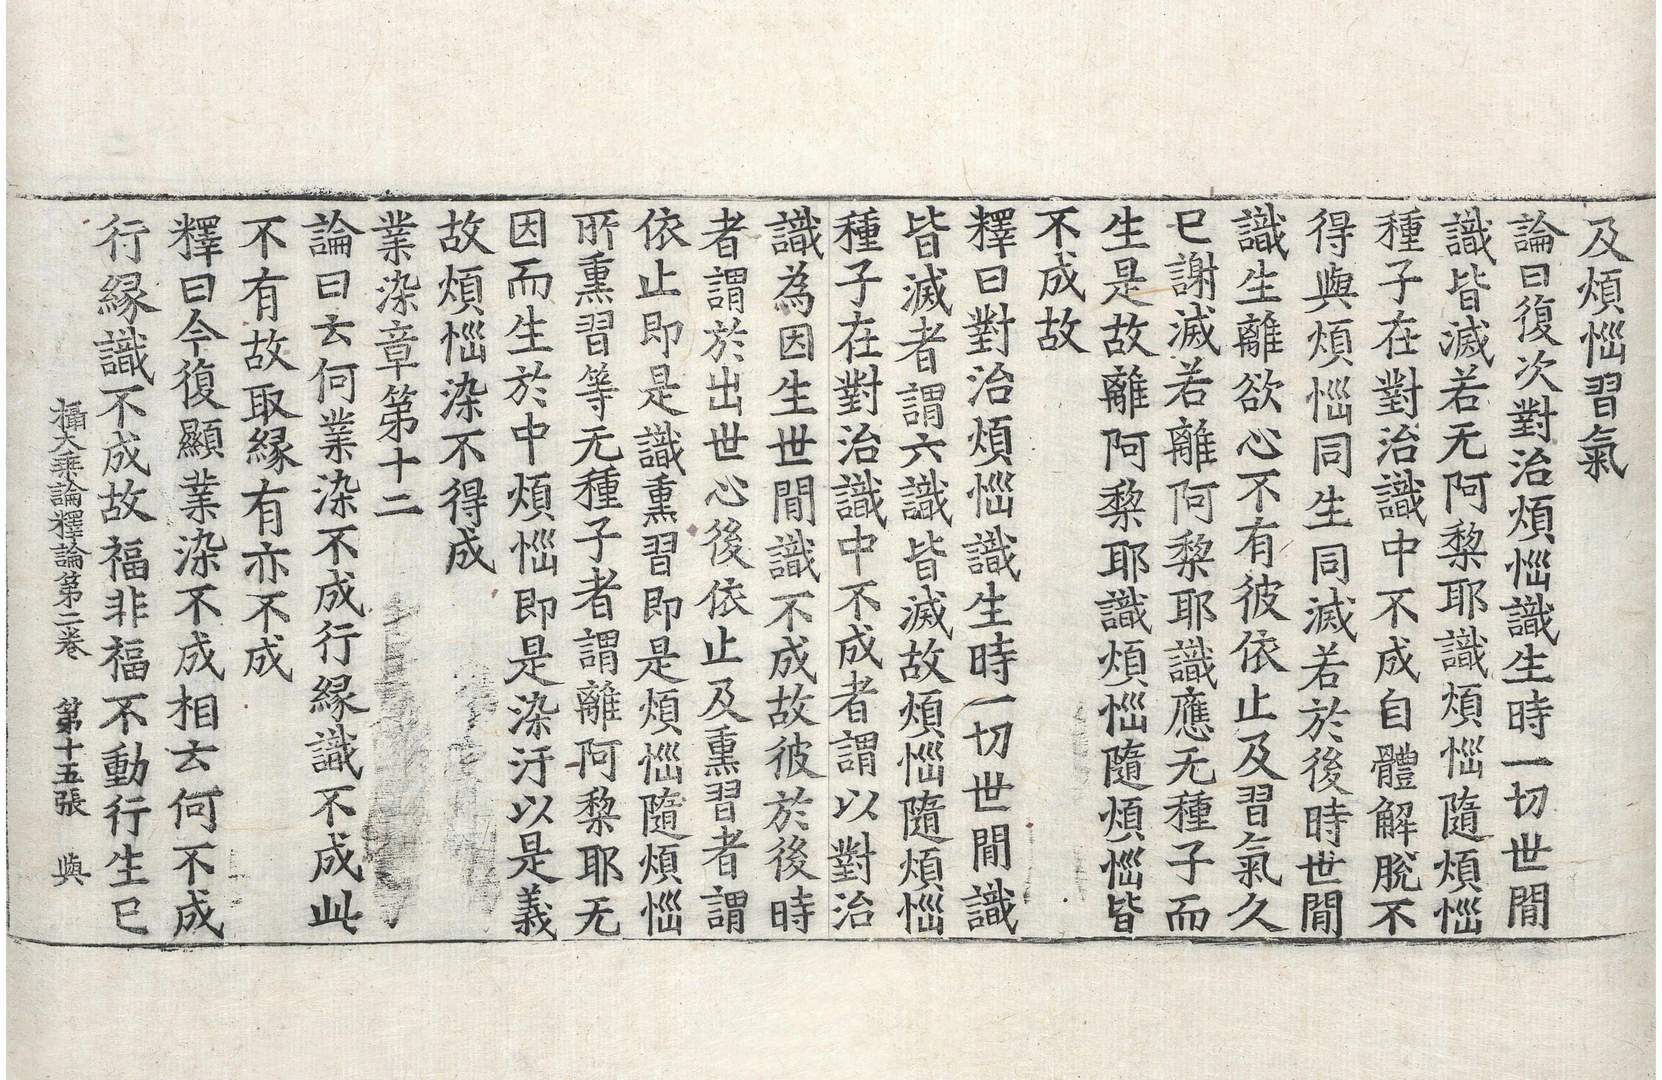 及煩惱習氣
論曰復次對治煩惱識生時一切世間
識皆滅若无阿梨耶識煩惱隨煩惱
種子在對治識中不成自體解脫不
得與煩惱同生同滅若於後時世間
識生離欲心不有彼依止及習氣久
已謝滅若離阿梨耶識應无種子而
生是故離阿梨耶識煩惱隨煩惱皆
不成故
釋曰對治煩惱識生時一切世間識
皆滅者謂六識皆滅故煩惱隨煩惱
種子在對治識中不成者謂以對治
識為因生世間識不成故彼於後時
者謂於出世心後依止及熏習者謂
依止即是識熏習即是煩惱隨煩惱
所熏習等无種子者謂離阿梨耶无
因而生於中煩惱即是染汙以是義
故煩惱染不得成
業染章第十二
論曰云何業染不成行緣識不成此
不有故取緣有亦不成
釋曰今復顯業染不成相云何不成
行緣識不成故福非福不動行生已
攝大乘論釋論第二卷 第十五張 與